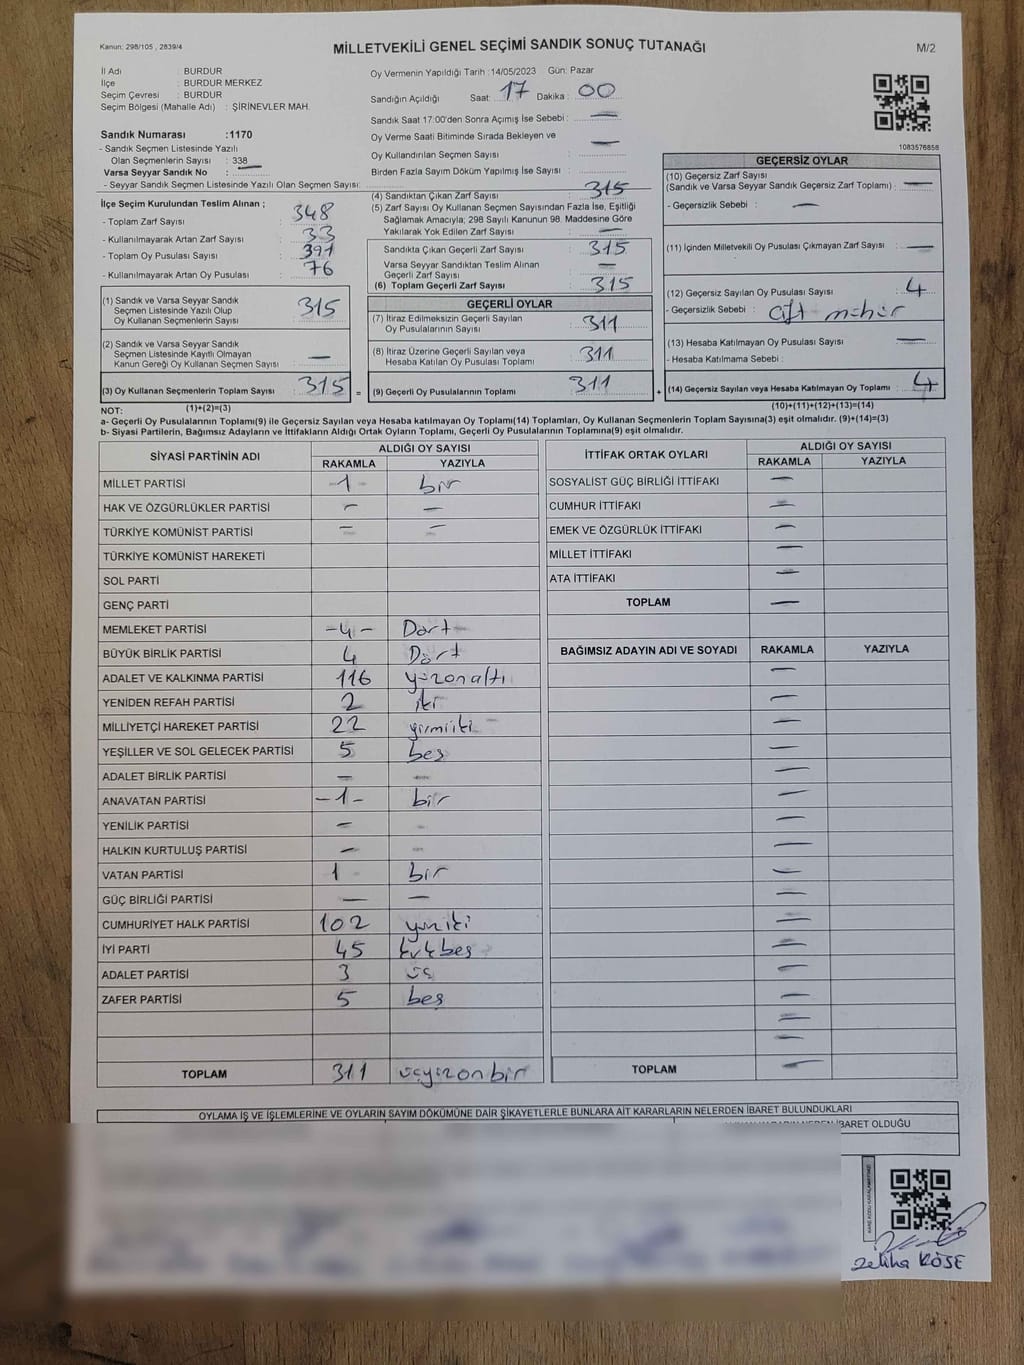 Kanun: 298/105 , 2839/4
MİLLETVEKİLİ GENEL SEÇİMİ SANDIK SONUÇ TUTANAĞI
M/2
İl Adı : BURDUR
İlçe : BURDUR MERKEZ
Seçim Çevresi : BURDUR
Seçim Bölgesi (Mahalle Adı) : ŞİRİNEVLER MAH.
Oy Vermenin Yapıldığı Tarih :14/05/2023 Gün: Pazar
Sandığın Açıldığı Saat: 17 Dakika : 00
Sandık Saat 17:00'den Sonra Açımış İse Sebebi : —
Oy Verme Saati Bitiminde Sırada Bekleyen ve
Oy Kullandırılan Seçmen Sayısı : —
Birden Fazla Sayım Döküm Yapılmış İse Sayısı :
1083576858
Sandık Numarası :1170
- Sandık Seçmen Listesinde Yazılı
Olan Seçmenlerin Sayısı : 338
Varsa Seyyar Sandık No : —
- Seyyar Sandık Seçmen Listesinde Yazılı Olan Seçmen Sayısı:
İlçe Seçim Kurulundan Teslim Alınan ;
- Toplam Zarf Sayısı : 348
- Kullanılmayarak Artan Zarf Sayısı : 33
- Toplam Oy Pusulası : 391
- Kullanılmayarak Artan Oy Pusulası : 76
(1) Sandık ve Varsa Seyyar Sandık
Seçmen Listesinde Yazılı Olup
Oy Kullanan Seçmenlerin Sayısı : 315
(2) Sandık ve Varsa Seyyar Sandık
Seçmen Listesinde Kayıtlı Olmayan
Kanun Gereği Oy Kullanan Seçmen Sayısı : —
(3) Oy Kullanan Seçmenlerin Toplam Sayısı : 315 =
(4) Sandıktan Çıkan Zarf Sayısı : 315
(5) Zarf Sayısı Oy Kullanan Seçmen Sayısından Fazla İse, Eşitliği
Sağlamak Amacıyla; 298 Sayılı Kanunun 98. Maddesine Göre
Yakılarak Yok Edilen Zarf Sayısı : —
Sandıkta Çıkan Geçerli Zarf Sayısı : 315
Varsa Seyyar Sandıktan Teslim Alınan
Geçerli Zarf Sayısı : —
(6) Toplam Geçerli Zarf Sayısı : 315
GEÇERLİ OYLAR
(7) İtiraz Edilmeksizin Geçerli Sayılan
Oy Pusulalarının Sayısı : 311
(8) İtiraz Üzerine Geçerli Sayılan veya
Hesaba Katılan Oy Pusulası Toplamı : 311
(9) Geçerli Oy Pusulalarının Toplamı : 311 +
GEÇERSİZ OYLAR
(10) Geçersiz Zarf Sayısı
(Sandık ve Varsa Seyyar Sandık Geçersiz Zarf Toplamı) : —
- Geçersizlik Sebebi : —
(11) İçinden Milletvekili Oy Pusulası Çıkmayan Zarf Sayısı : —
(12) Geçersiz Sayılan Oy Pusulası Sayısı : 4
- Geçersizlik Sebebi : çift mühür
(13) Hesaba Katılmayan Oy Pusulası Sayısı : —
- Hesaba Katılmama Sebebi :
(14) Geçersiz Sayılan veya Hesaba Katılmayan Oy Toplamı : 4
NOT: (1)+(2)=(3)
(10)+(11)+(12)+(13)=(14)
a- Geçerli Oy Pusulalarının Toplamı(9) ile Geçersiz Sayılan veya Hesaba katılmayan Oy Toplamı(14) Toplamları, Oy Kullanan Seçmenlerin Toplam Sayısına(3) eşit olmalıdır. (9)+(14)=(3)
b- Siyasi Partilerin, Bağımsız Adayların ve İttifakların Aldığı Ortak Oyların Toplamı, Geçerli Oy Pusulalarının Toplamına(9) eşit olmalıdır.
SİYASİ PARTİNİN ADI
ALDIĞI OY SAYISI
RAKAMLA YAZIYLA
MİLLET PARTİSİ -1- bir
HAK VE ÖZGÜRLÜKLER PARTİSİ — —
TÜRKİYE KOMÜNİST PARTİSİ — —
TÜRKİYE KOMÜNİST HAREKETİ
SOL PARTİ
GENÇ PARTİ
MEMLEKET PARTİSİ -4- Dört
BÜYÜK BİRLİK PARTİSİ 4 Dört
ADALET VE KALKINMA PARTİSİ 116 yüzonaltı
YENİDEN REFAH PARTİSİ 2 iki
MİLLİYETÇİ HAREKET PARTİSİ 22 yirmiiki
YEŞİLLER VE SOL GELECEK PARTİSİ 5 beş
ADALET BİRLİK PARTİSİ — —
ANAVATAN PARTİSİ -1- bir
YENİLİK PARTİSİ — -
HALKIN KURTULUŞ PARTİSİ — —
VATAN PARTİSİ 1 bir
GÜÇ BİRLİĞİ PARTİSİ — —
CUMHURİYET HALK PARTİSİ 102 yüziki
İYİ PARTİ 45 kırkbeş
ADALET PARTİSİ 3 üç
ZAFER PARTİSİ 5 beş
TOPLAM 311 üçyüzonbir
İTTİFAK ORTAK OYLARI
ALDIĞI OY SAYISI
RAKAMLA YAZIYLA
SOSYALİST GÜÇ BİRLİĞİ İTTİFAKI —
CUMHUR İTTİFAKI —
EMEK VE ÖZGÜRLÜK İTTİFAKI —
MİLLET İTTİFAKI —
ATA İTTİFAKI —
TOPLAM —
BAĞIMSIZ ADAYIN ADI VE SOYADI RAKAMLA YAZIYLA
—
—
—
—
—
—
—
—
—
—
—
—
—
—
—
—
TOPLAM —
OYLAMA İŞ VE İŞLEMLERİNE VE OYLARIN SAYIM DÖKÜMÜNE DAİR ŞİKAYETLERLE BUNLARA AİT KARARLARIN NELERDEN İBARET BULUNDUKLARI
İBARET OLDUĞU
Zeliha KÖSE